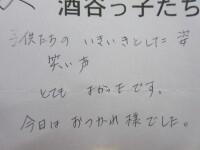 酒谷っ子たち
子供たちの いきいきとした 姿
笑い声
とても よかったです。
今日は おつかれ様でした。